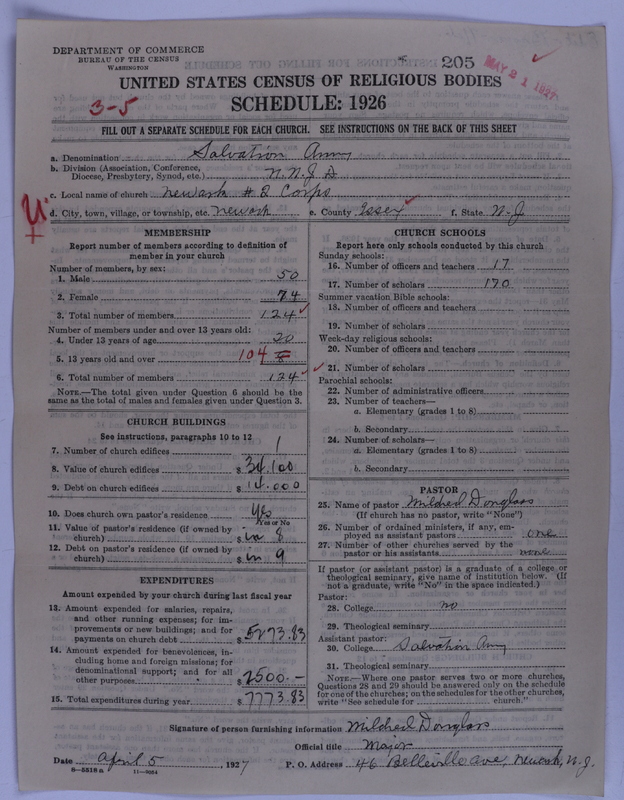 DEPARTMENT OF COMMERCE
BUREAU OF THE CENSUS
WASHINGTON
205
MAY 21 1927
UNITED STATES CENSUS OF RELIGIOUS BODIES
3-5
SCHEDULE: 1926
FILL OUT A SEPARATE SCHEDULE FOR EACH CHURCH. SEE INSTRUCTIONS ON THE BACK OF THIS SHEET
a. Denomination Salvation Army
b. Division (Association, Conference,
Diocese, Presbytery, Synod, etc.) N.N.J D
c. Local name of church Newark #2 Corps
d. City, town, village, or township, etc. Newark e. County Essex f. State N-J
MEMBERSHIP
Report number of members according to definition of
member in your church
Number of members, by sex:
1. Male 50
2. Female 74
3. Total number of members 124
Number of members under and over 13 years old:
4. Under 13 years of age 20
5. 13 years old and over 104
6. Total number of members 124
NOTE.—The total given under Question 6 should be the
same as the total of males and females given under Question 3.
CHURCH BUILDINGS
See instructions, paragraphs 10 to 12
7. Number of church edifices 1
8. Value of church edifices $ 34,100
9. Debt on church edifices $ 14,000
10. Does church own pastor's residence Yes
Yes or No
11. Value of pastor's residence (if owned by
church) $ in 8
12. Debt on pastor's residence (if owned by
church) $ in 9
EXPENDITURES
Amount expended by your church during last fiscal year
13. Amount expended for salaries, repairs,
and other running expenses; for im-
provements or new buildings; and for
payments on church debt $ 5273.83
14. Amount expended for benevolences, in-
cluding home and foreign missions; for
denominational support; and for all
other purposes $ 2500.-
15. Total expenditures during year $ 7773.83
CHURCH SCHOOLS
Report here only schools conducted by this church
Sunday schools:
16. Number of officers and teachers 17
17. Number of scholars 170
Summer vacation Bible schools:
18. Number of officers and teachers
19. Number of scholars
Week-day religious schools:
20. Number of officers and teachers
21. Number of scholars
Parochial schools:
22. Number of administrative officers
23. Number of teachers—
a. Elementary (grades 1 to 8)
b. Secondary
24. Number of scholars—
a. Elementary (grades 1 to 8)
b. Secondary
PASTOR
25. Name of pastor Mildred Douglass
(If church has no pastor, write "None")
26. Number of ordained ministers, if any, em-
ployed as assistant pastors one
27. Number of other churches served by the
pastor or his assistants none
If pastor (or assistant pastor) is a graduate of a college or
theological seminary, give name of institution below. (If
not a graduate, write "No" in the space indicated.)
Pastor:
28. College no
29. Theological seminary
Assistant pastor:
30. College Salvation Army
31. Theological seminary
NOTE.—Where one pastor serves two or more churches,
Questions 28 and 29 should be answered only on the schedule
for one of the churches; on the schedules for the other churches,
write "See schedule for church."
Signature of person furnishing information Mildred Douglass
Official title Major
Date April 5, 1927 P. O. Address 46 Belleville Ave, Newark, N.J.
8-5518 a 11-9054